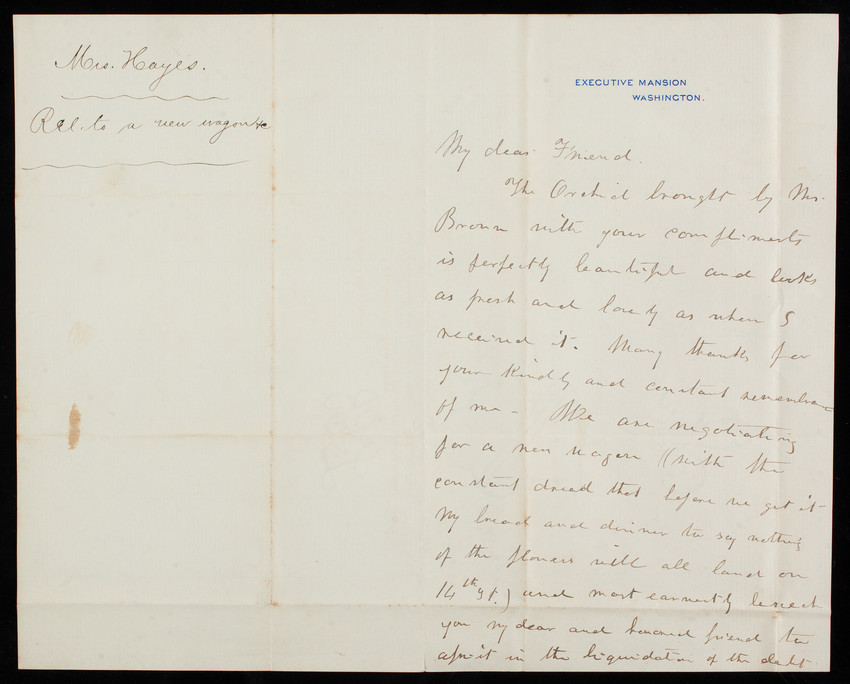 Mrs. Hayes.
Rel. to a new wagon &c
EXECUTIVE MANSION
WASHINGTON.
My dear Friend.
The Orchid brought by Mr.
Brown with your compliments
is perfectly beautiful and looks
as fresh and lovely as when I
received it. Many thanks for
your kindly and constant remembrance
of me - We are negotiating
for a new wagon ((with the
constant dread that before we get it
my bread and dinner to say nothing
of the flowers will all land on
14th St.) and most earnestly beseech
you my dear and honored friend to
assist in the liquidation of the debt